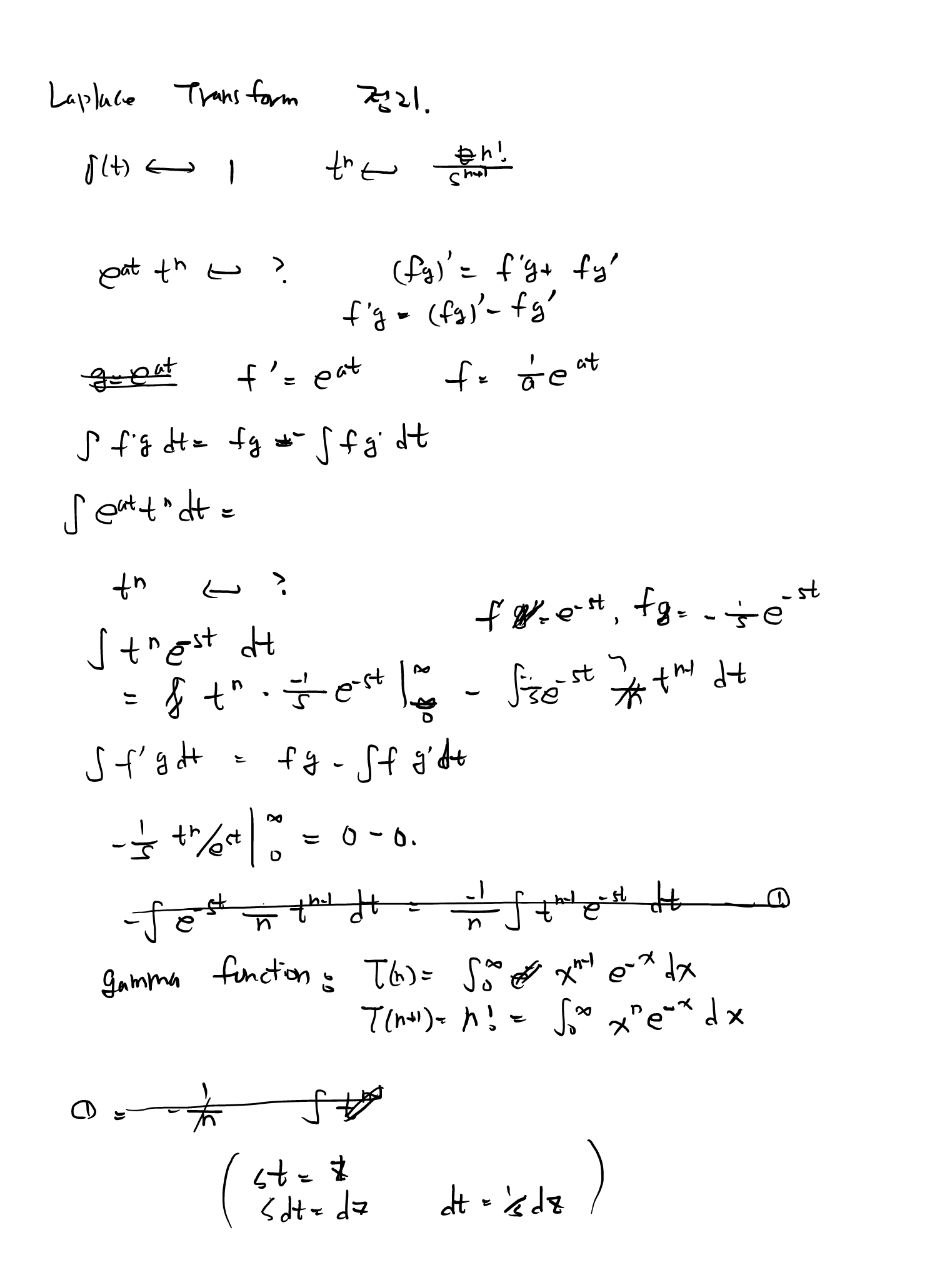 Laplace Transform 정리.
δ(t) ⟷ 1 tⁿ ↔ n!/sⁿ⁺¹
eᵃᵗ tⁿ ↔ ? (fg)' = f'g + fg'
f'g = (fg)' - fg'
g = eᵃᵗ f' = eᵃᵗ f = 1/a eᵃᵗ
∫ f'g dt = fg - ∫ fg' dt
∫ eᵃᵗ tⁿ dt =
tⁿ ↔ ?
f' = e⁻ˢᵗ, f = -1/s e⁻ˢᵗ
∫ tⁿ e⁻ˢᵗ dt
= tⁿ · -1/s e⁻ˢᵗ |₀^∞ - ∫ -1/s e⁻ˢᵗ n tⁿ⁻¹ dt
∫ f'g dt = fg - ∫ f g' dt
-1/s tⁿ/eˢᵗ |₀^∞ = 0 - 0.
-∫ e⁻ˢᵗ 1/n tⁿ⁻¹ dt = -1/n ∫ tⁿ⁻¹ e⁻ˢᵗ dt ①
gamma function: Γ(n) = ∫₀^∞ xⁿ⁻¹ e⁻ˣ dx
Γ(n+1) = n! = ∫₀^∞ xⁿ e⁻ˣ dx
① = -1/n ∫ t
( st = z
sdt = dz dt = 1/s dz )